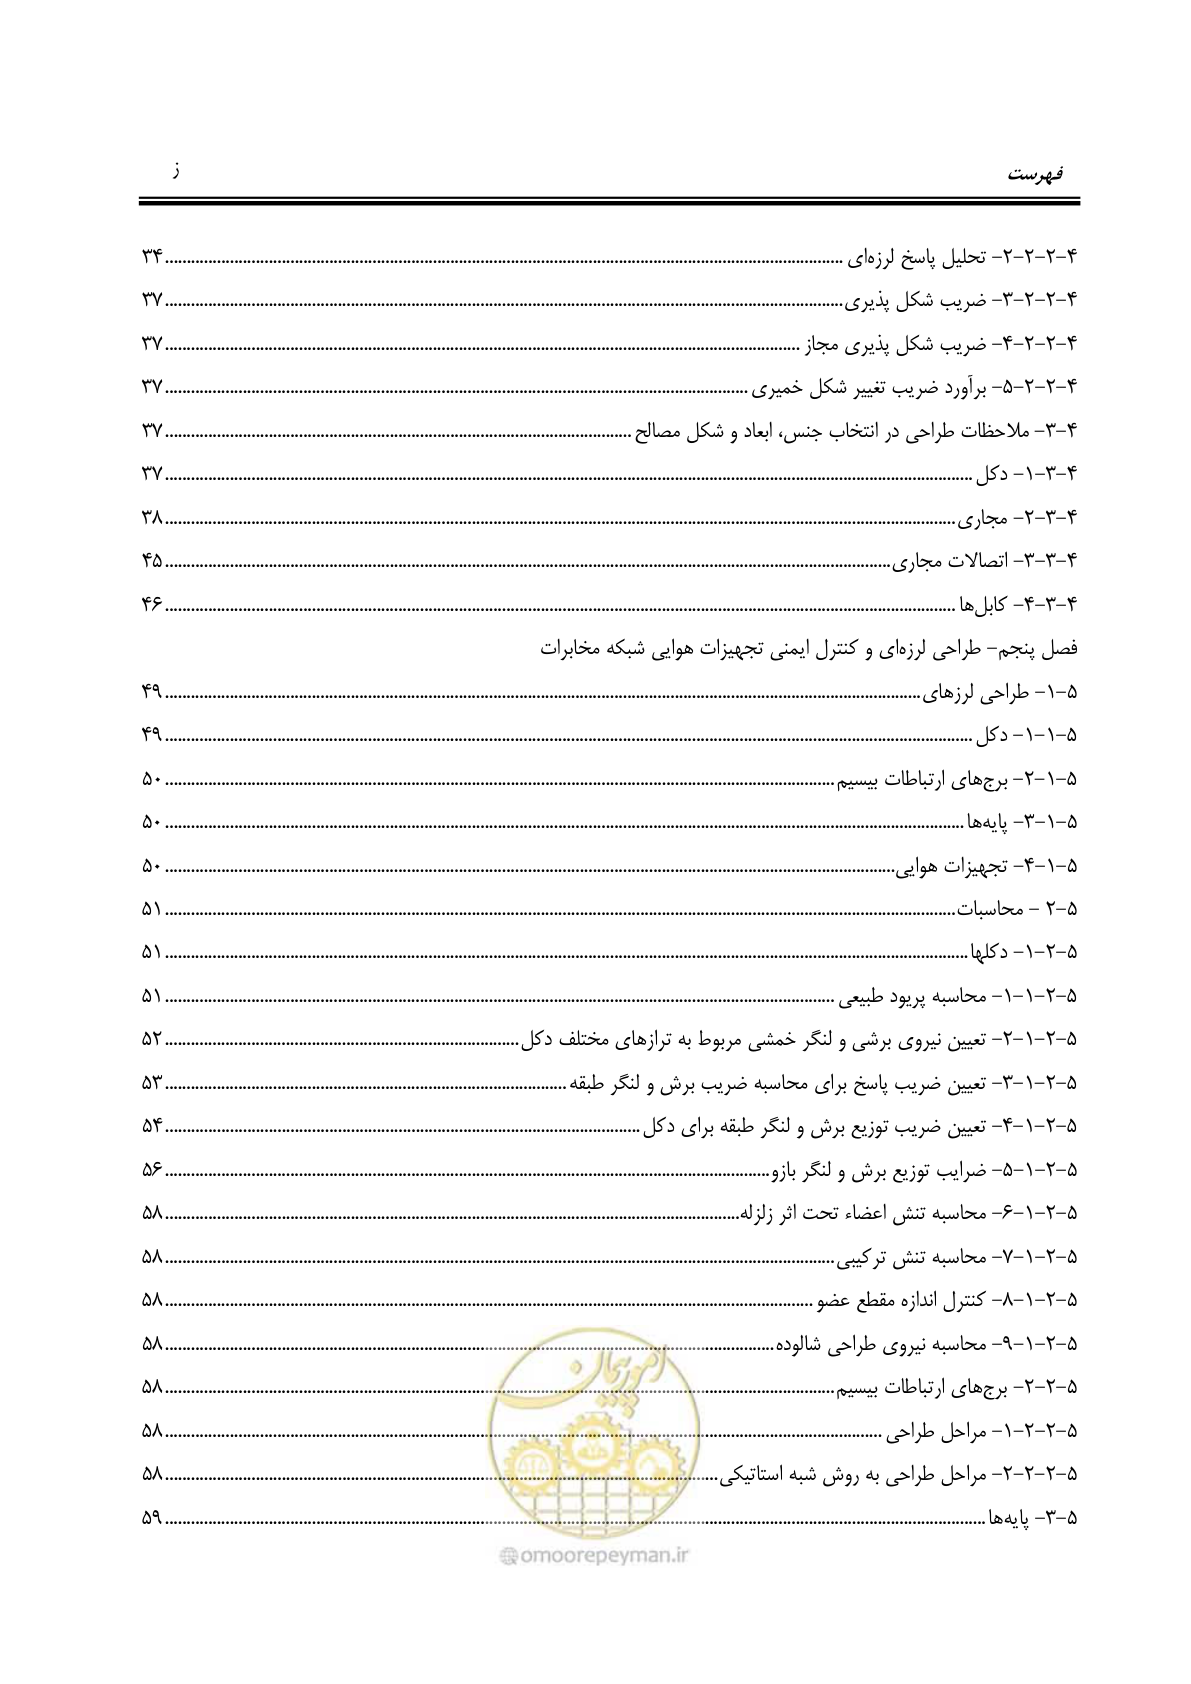 فهرست ز
۴-۲-۲-۲- تحلیل پاسخ لرزه‌ای ........ ۳۴
۴-۲-۲-۳- ضریب شکل پذیری ........ ۳۷
۴-۲-۲-۴- ضریب شکل پذیری مجاز ........ ۳۷
۴-۲-۲-۵- برآورد ضریب تغییر شکل خمیری ........ ۳۷
۴-۳- ملاحظات طراحی در انتخاب جنس، ابعاد و شکل مصالح ........ ۳۷
۴-۳-۱- دکل ........ ۳۷
۴-۳-۲- مجاری ........ ۳۸
۴-۳-۳- اتصالات مجاری ........ ۴۵
۴-۳-۴- کابل‌ها ........ ۴۶
فصل پنجم- طراحی لرزه‌ای و کنترل ایمنی تجهیزات هوایی شبکه مخابرات
۵-۱- طراحی لرزهای ........ ۴۹
۵-۱-۱- دکل ........ ۴۹
۵-۱-۲- برج‌های ارتباطات بیسیم ........ ۵۰
۵-۱-۳- پایه‌ها ........ ۵۰
۵-۱-۴- تجهیزات هوایی ........ ۵۰
۵-۲ - محاسبات ........ ۵۱
۵-۲-۱- دکلها ........ ۵۱
۵-۲-۱-۱- محاسبه پریود طبیعی ........ ۵۱
۵-۲-۱-۲- تعیین نیروی برشی و لنگر خمشی مربوط به ترازهای مختلف دکل ........ ۵۲
۵-۲-۱-۳- تعیین ضریب پاسخ برای محاسبه ضریب برش و لنگر طبقه ........ ۵۳
۵-۲-۱-۴- تعیین ضریب توزیع برش و لنگر طبقه برای دکل ........ ۵۴
۵-۲-۱-۵- ضرایب توزیع برش و لنگر بازو ........ ۵۶
۵-۲-۱-۶- محاسبه تنش اعضاء تحت اثر زلزله ........ ۵۸
۵-۲-۱-۷- محاسبه تنش ترکیبی ........ ۵۸
۵-۲-۱-۸- کنترل اندازه مقطع عضو ........ ۵۸
۵-۲-۱-۹- محاسبه نیروی طراحی شالوده ........ ۵۸
۵-۲-۲- برج‌های ارتباطات بیسیم ........ ۵۸
۵-۲-۲-۱- مراحل طراحی ........ ۵۸
۵-۲-۲-۲- مراحل طراحی به روش شبه استاتیکی ........ ۵۸
۵-۳- پایه‌ها ........ ۵۹
امور پیمان
@omoorepeyman.ir